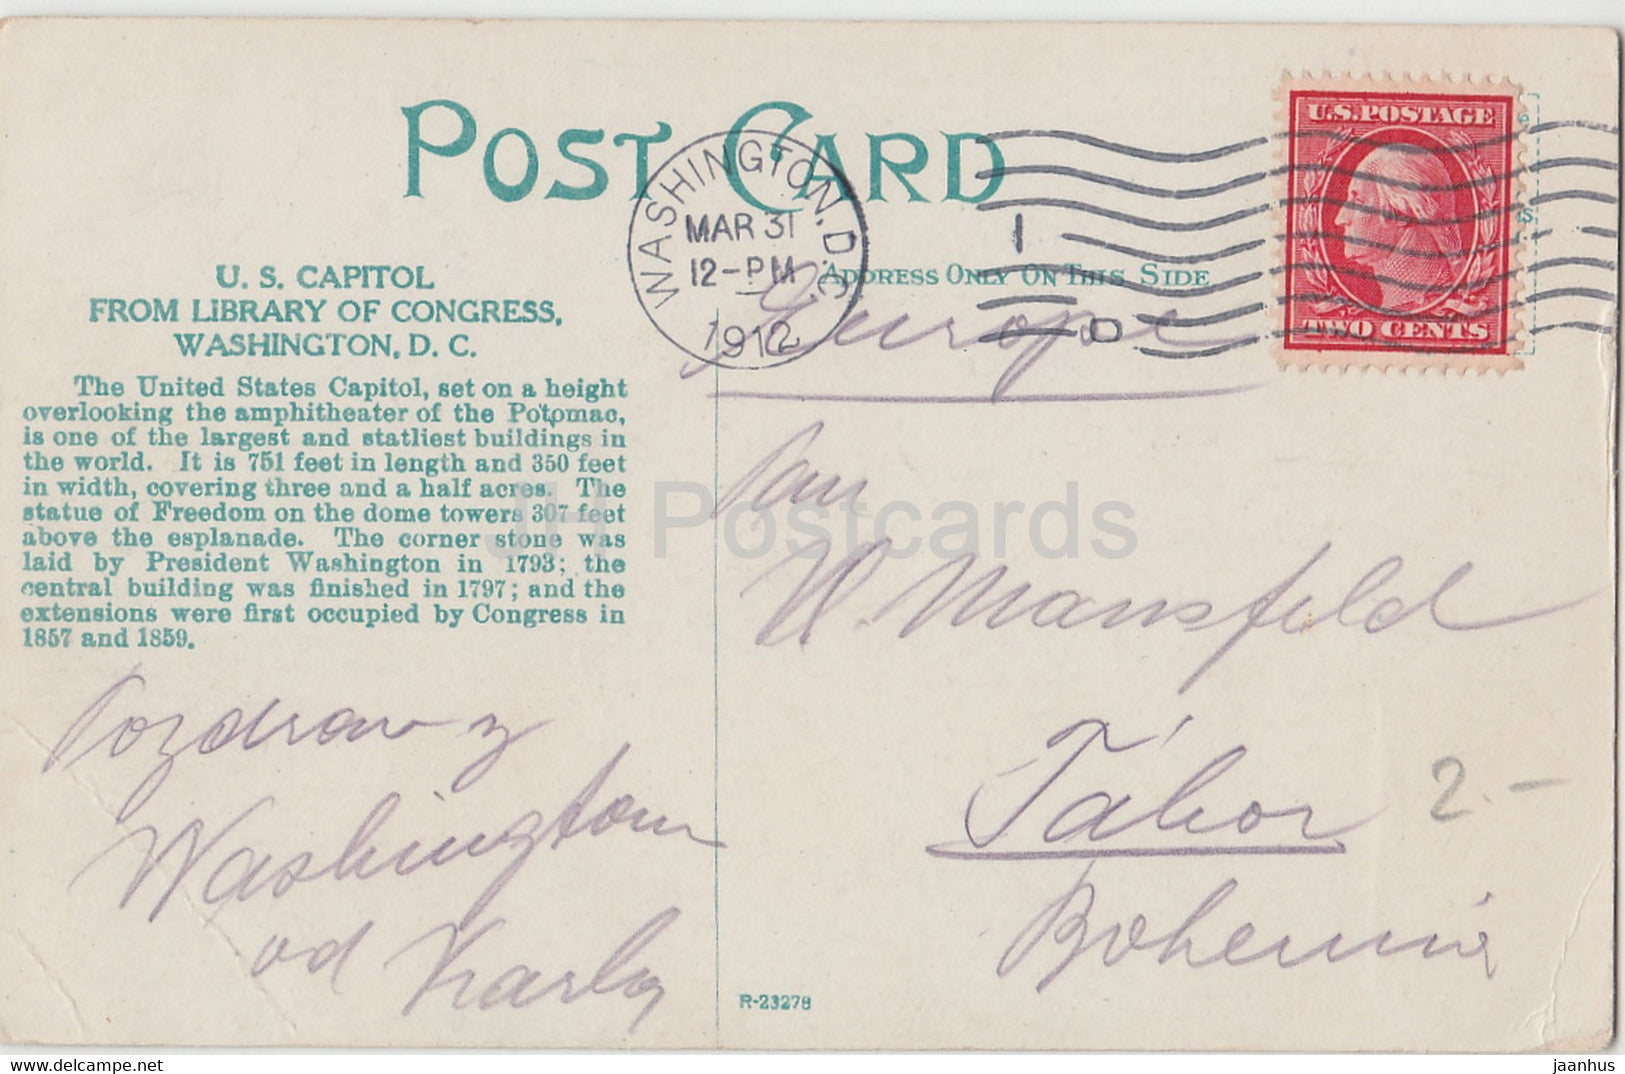 POST CARD
WASHINGTON, D.C.
MAR 31
12-PM
1912
1
D
U.S. POSTAGE
TWO CENTS
ADDRESS ONLY ON THIS SIDE
U. S. CAPITOL
FROM LIBRARY OF CONGRESS,
WASHINGTON, D. C.
The United States Capitol, set on a height
overlooking the amphitheater of the Potomac,
is one of the largest and statliest buildings in
the world. It is 751 feet in length and 350 feet
in width, covering three and a half acres. The
statue of Freedom on the dome towers 307 feet
above the esplanade. The corner stone was
laid by President Washington in 1793; the
central building was finished in 1797; and the
extensions were first occupied by Congress in
1857 and 1859.
Pozdrav z
Washingtonu
od Karla
Europe
Pan
Mansfeld
Tábor
Bohemia
2.-
R-23278
JH Postcards
delcampe.net
jaanhus